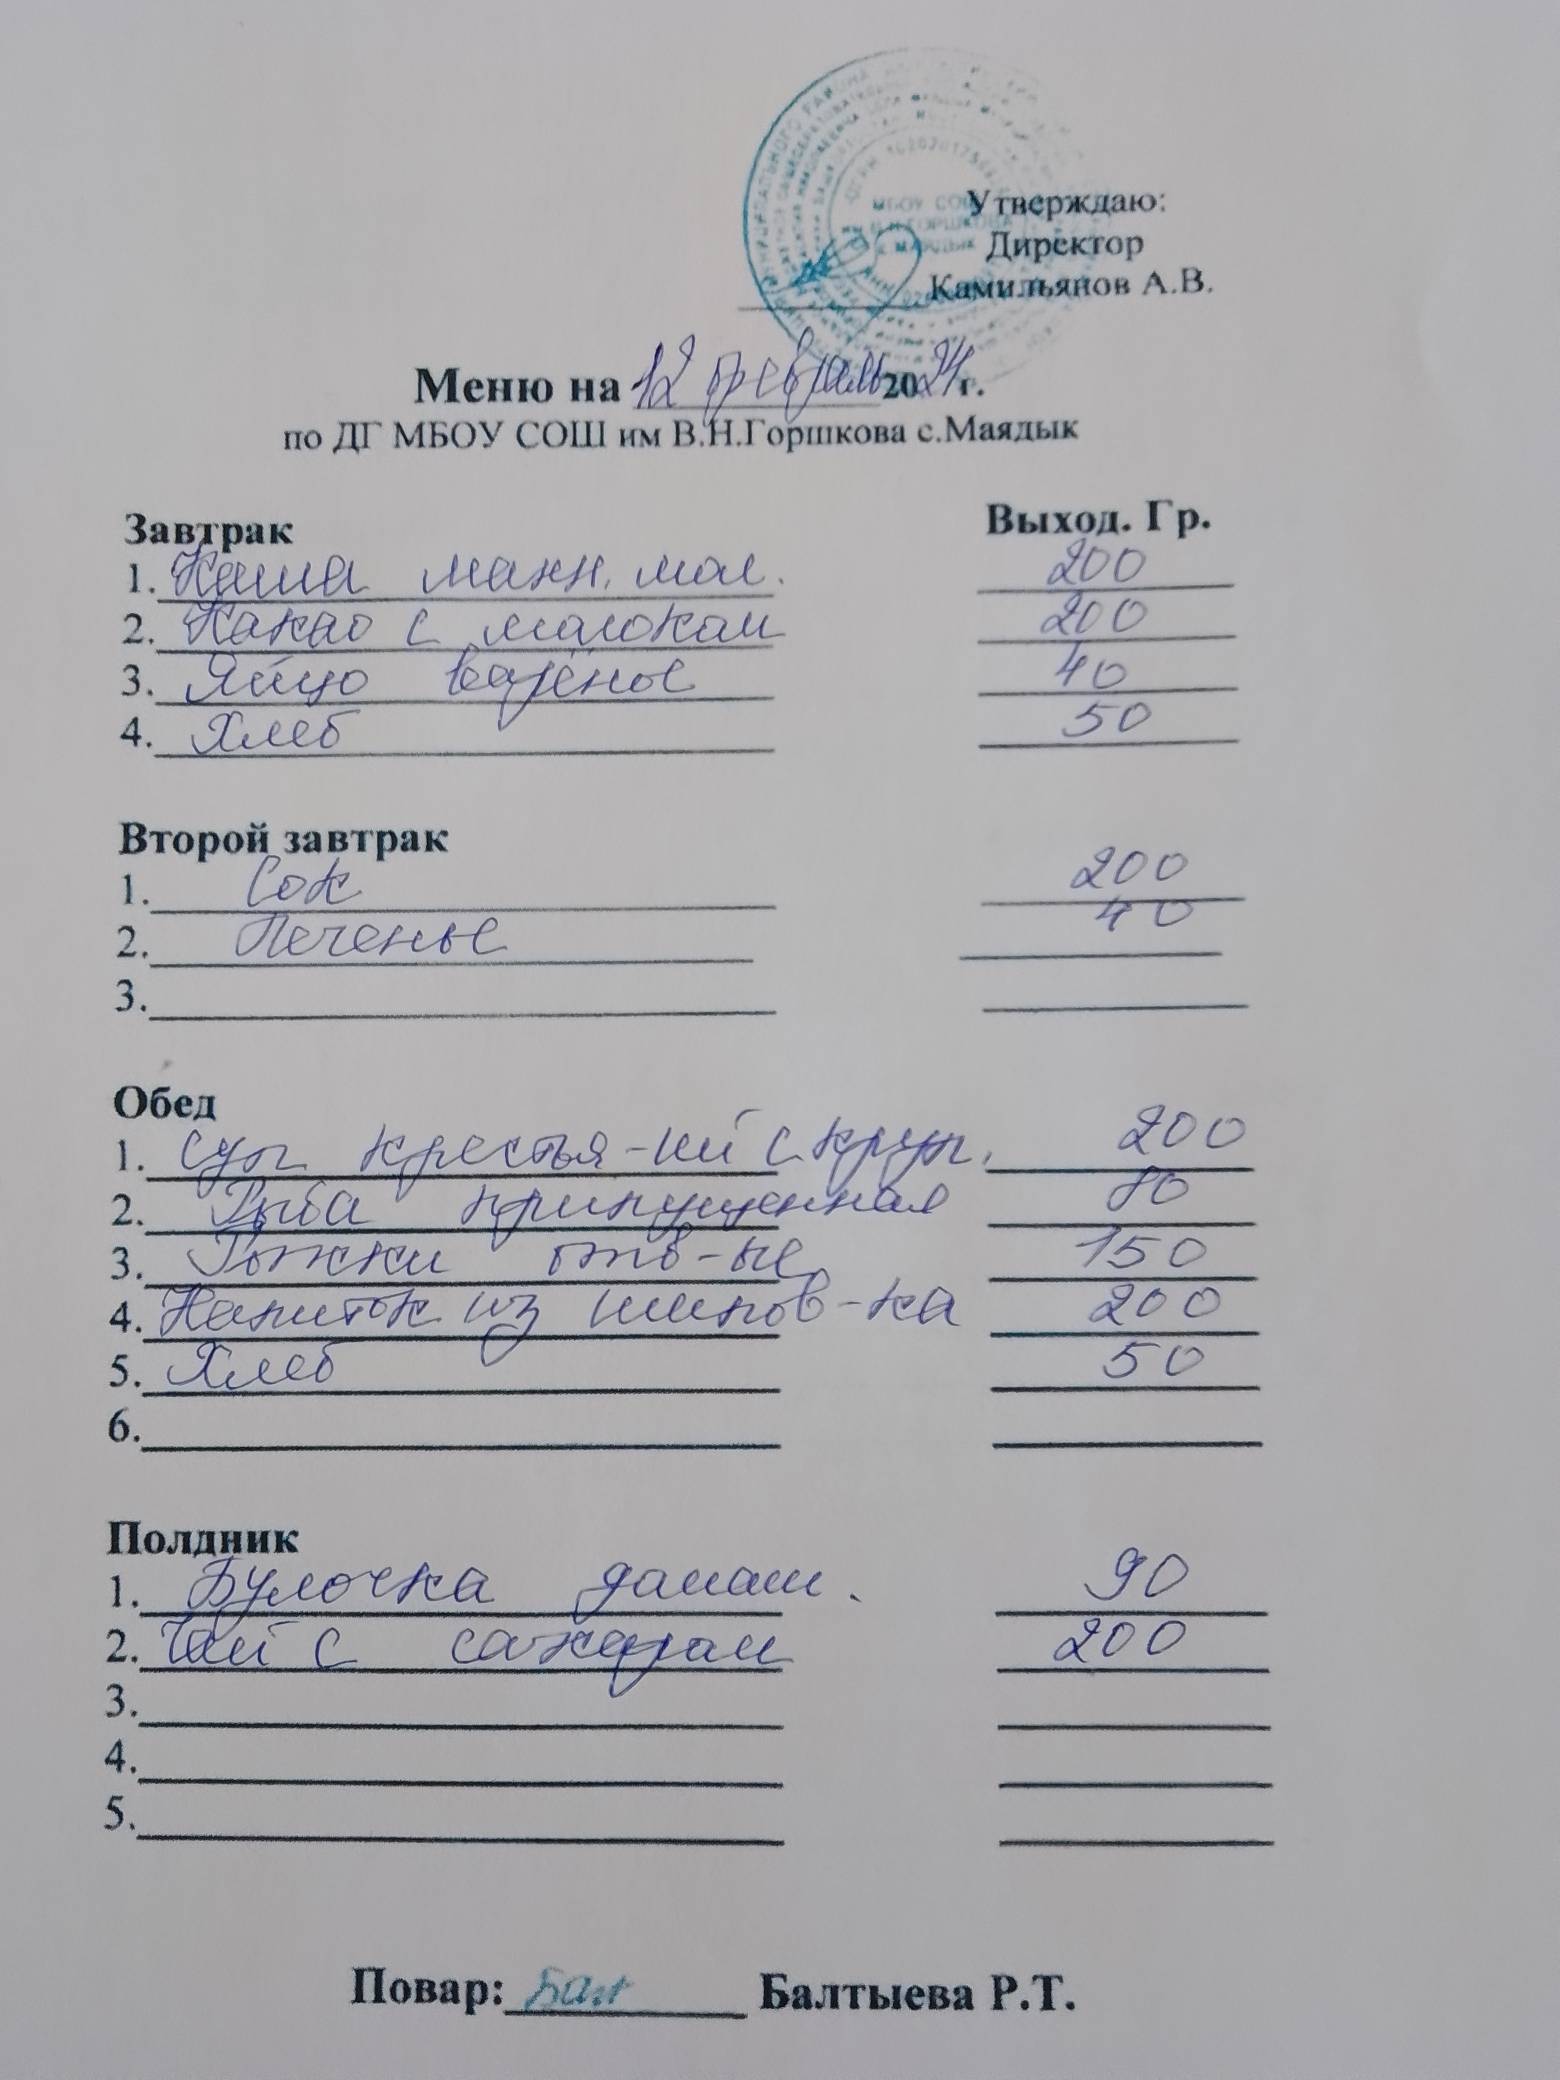 МБОУ СОШ
Утверждаю:
Директор
Камильянов А.В.
Меню на 12 февраль 2024 г.
по ДГ МБОУ СОШ им В.Н.Горшкова с.Маядык
Завтрак Выход. Гр.
1. Каша манн. мол. 200
2. Какао с молоком 200
3. Яйцо варёное 40
4. Хлеб 50
Второй завтрак
1. Сок 200
2. Печенье 40
3.
Обед
1. Суп крестья-ий с круп. 200
2. Рыба припущенная 80
3. Рожки отв-ые 150
4. Напиток из шипов-ка 200
5. Хлеб 50
6.
Полдник
1. Булочка домаш. 90
2. Чай с сахаром 200
3.
4.
5.
Повар: Бал Балтыева Р.Т.